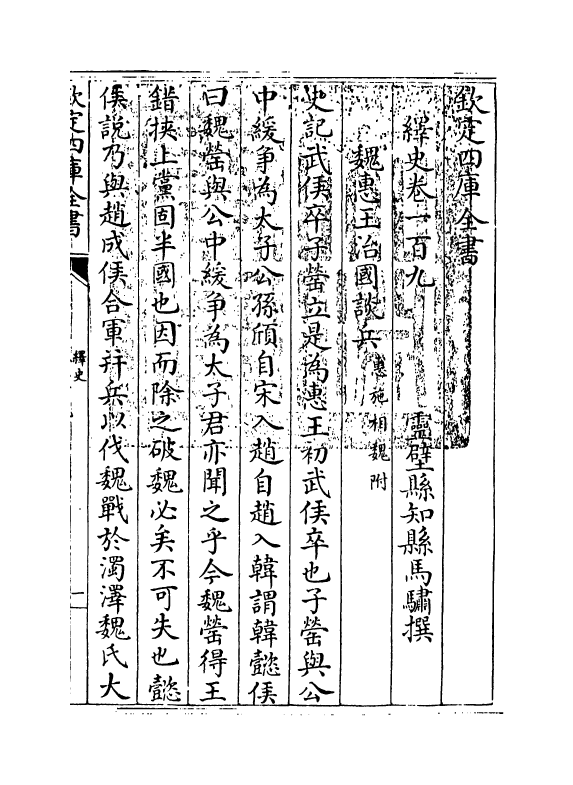 欽定四庫全書
繹史卷一百九
靈壁縣知縣馬驌撰
魏惠王治國談兵惠施相魏附
史記武侯卒子罃立是為惠王初武侯卒也子罃與公
中緩爭為太子公孫頎自宋入趙自趙入韓謂韓懿侯
曰魏罃與公中緩爭為太子君亦聞之乎今魏罃得王
錯挾上黨固半國也因而除之破魏必矣不可失也懿
侯說乃與趙成侯合軍并兵以伐魏戰於濁澤魏氏大
欽定四庫全書
繹史
一